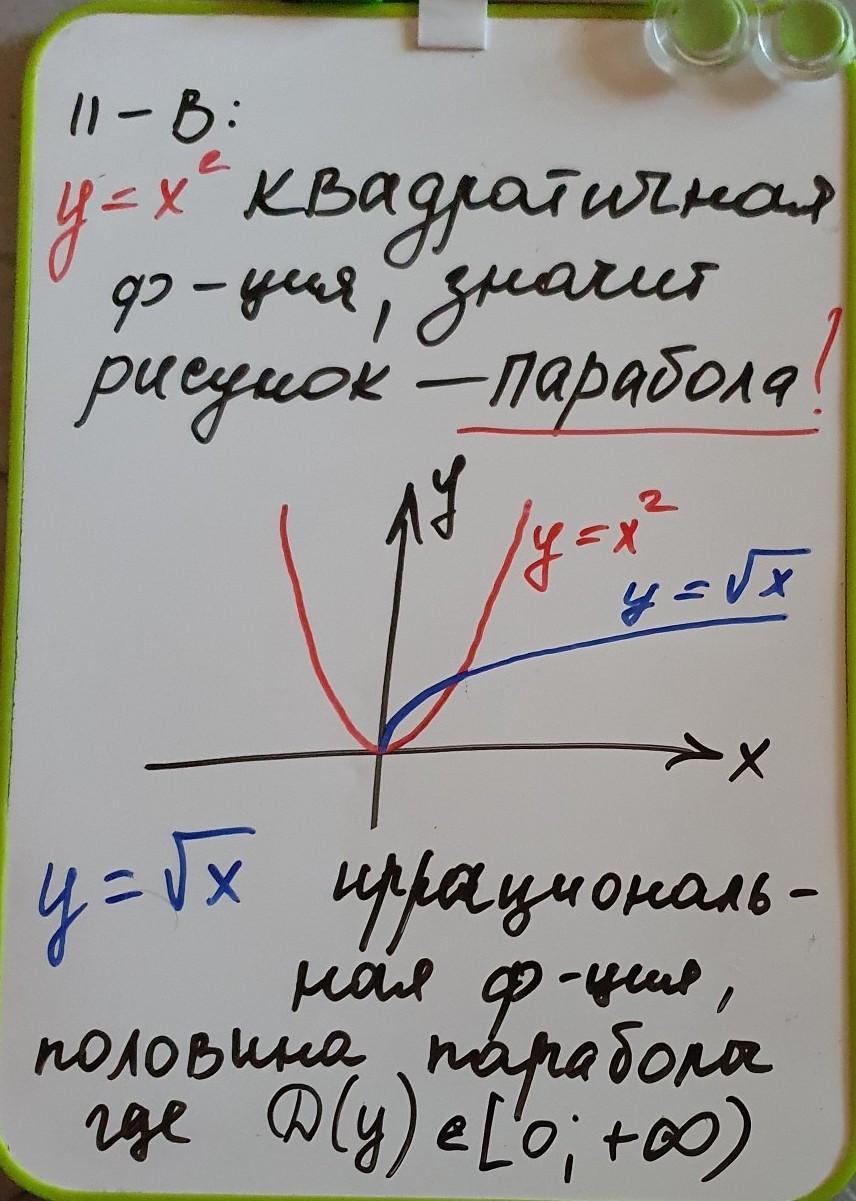 11-В:
y = x² квадратичная
ф-ция, значит
рисунок — парабола!
y
y = x²
y = √x
x
y = √x иррациональ-
ная ф-ция,
половина параболы
где D(y) ∈ [0; +∞)